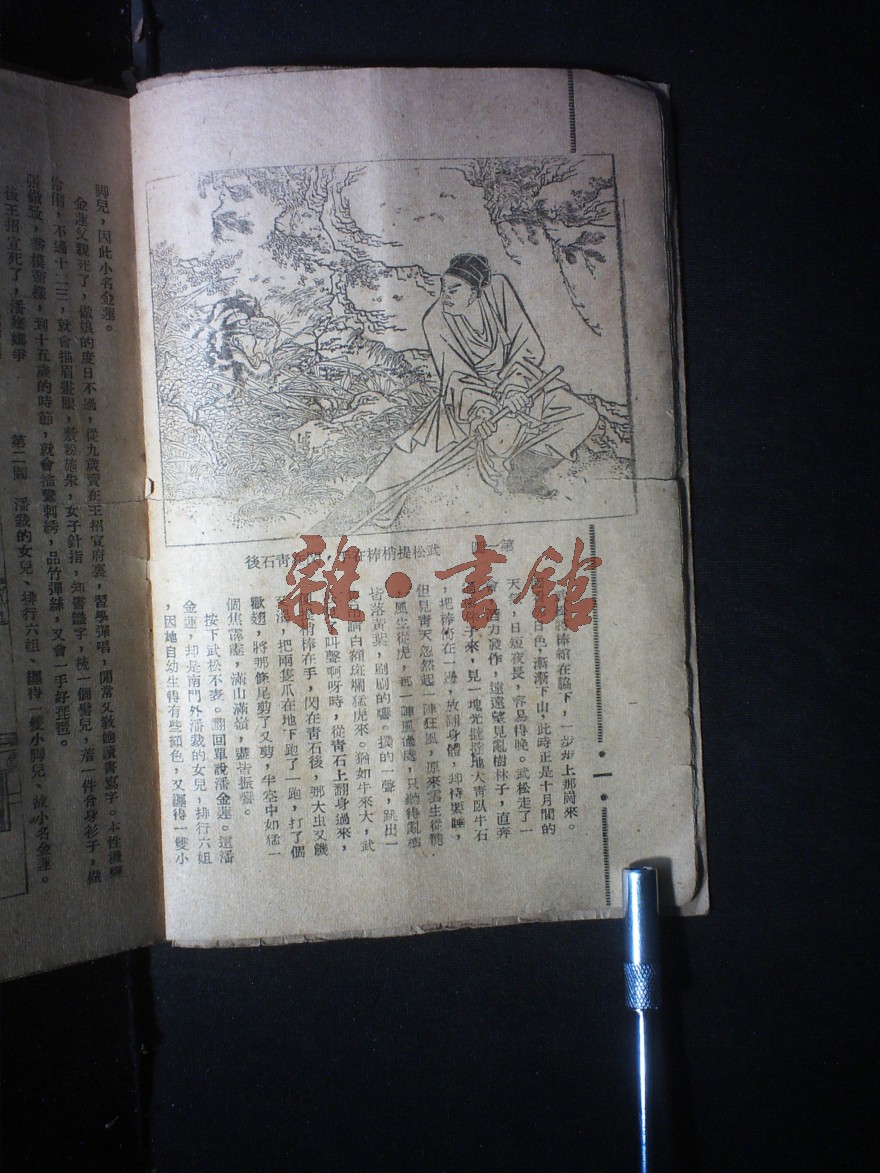 第一圖 武松提梢棒在手，閃在青石後
棒綰在脇下，一步步上那崗來。
日色，漸漸下山，此時正是十月間的
天氣，日短夜長，容易得晚。武松走了一
會，酒力發作，遠遠望見亂樹林子，直奔
過樹林子來，見一塊光撻撻地大青臥牛石
，把棒倚在一邊，放翻身體，却待要睡，
但見青天忽然起一陣狂風，原來雲生從龍
，風生從虎，那一陣風過處，只聽得亂樹
皆落黃葉，刷刷的響。撲的一聲，跳出一
隻吊睛白額斑斕猛虎來。猶如牛來大，武
松見了，叫聲啊呀時，從青石上翻身過來，
便提梢棒在手，閃在青石後，那大虫又饑
又渴，把兩隻爪在地下跑了一跑，打了個
歡翅，將那條尾剪了又剪，半空中如猛一
個焦霹靂，滿山滿嶺，盡皆振響。
按下武松不表。翻回單說潘金蓮。這潘
金蓮，却是南門外潘裁的女兒，排行六姐
，因她自幼生得有些顏色，又纏得一雙小
一
脚兒，因此小名金蓮。
金蓮父親死了，做娘的度日不過，從九歲賣在王招宣府裏，習學彈唱，閒常又教她讀書寫字。本性機變
伶俐，不過十二三，就會描眉畫眼，敷粉施朱，女子針指，知書識字，梳一個髻兒，著一件合身衫子，做
張做致，喬模喬樣，到十五歲的時節，就會描鸞刺綉，品竹彈絲，又會一手好琵琶。
後王招宣死了，潘媽媽爭
第二圖 潘裁的女兒、排行六姐、纏得一雙小脚兒、故小名金蓮。
雜·書館